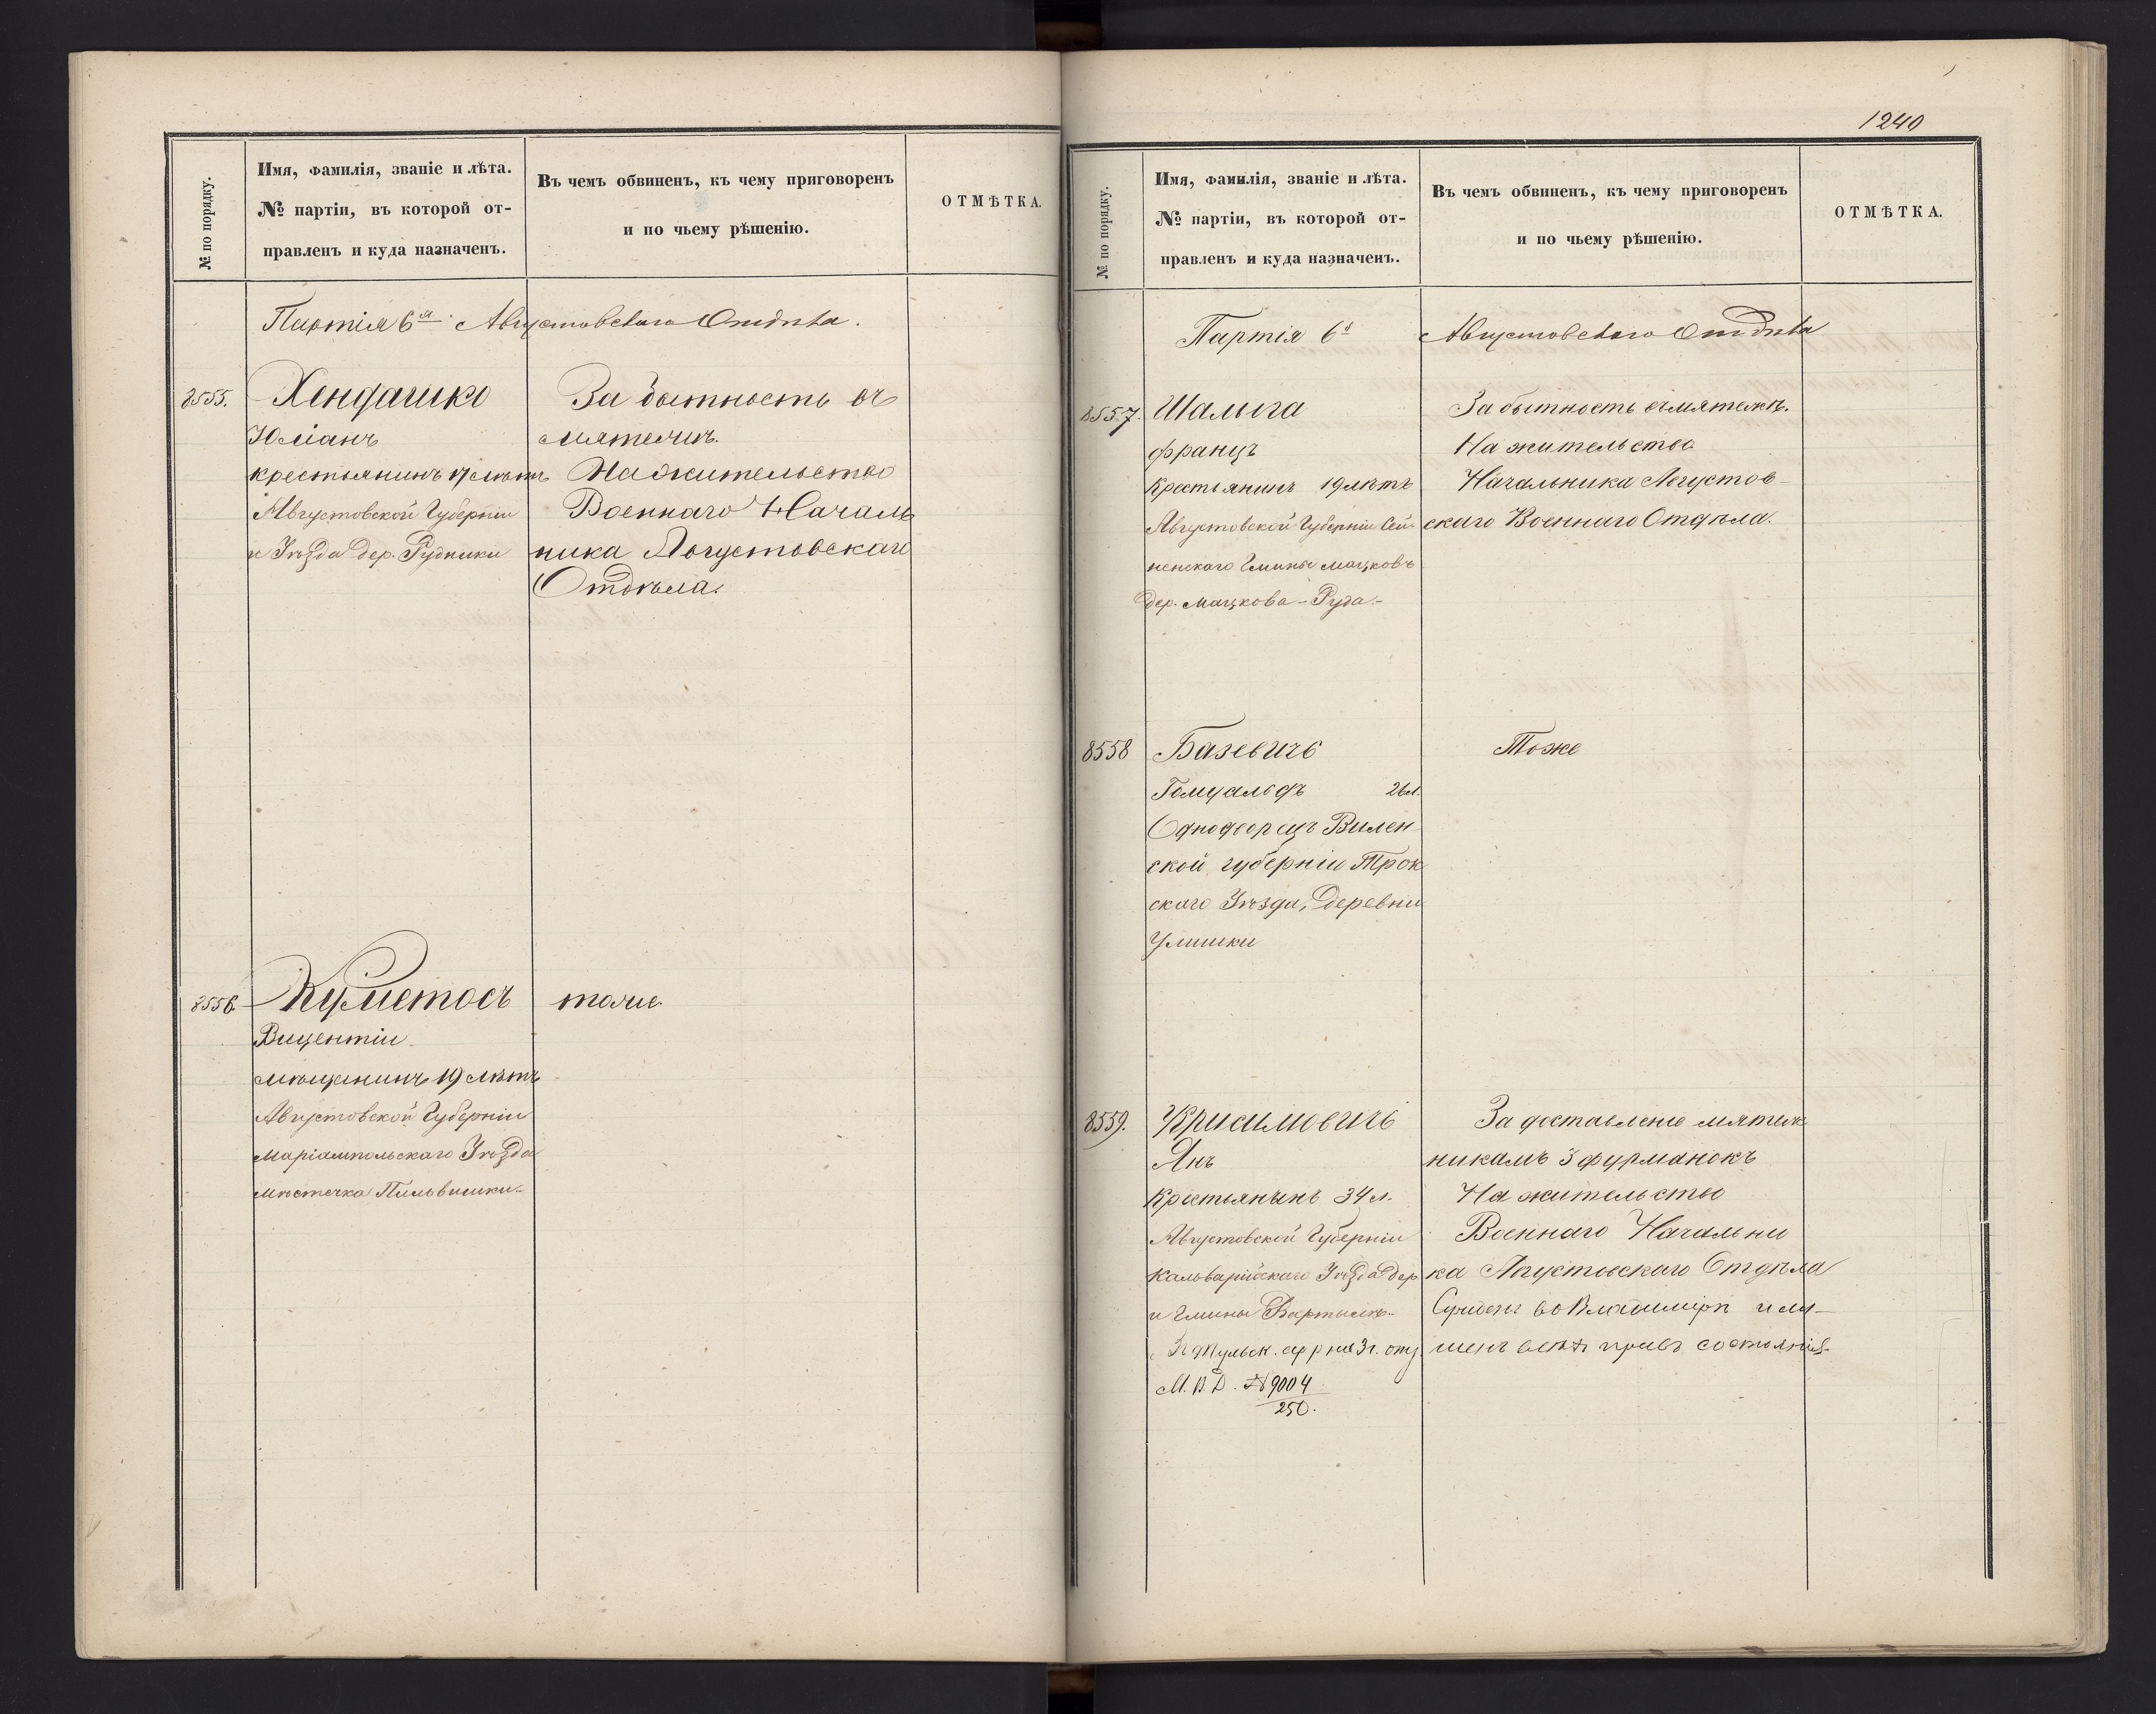 № по порядку.
Имя, фамилія, званіе и лѣта.
№ партіи, въ которой от-
правленъ и куда назначенъ.
Въ чемъ обвиненъ, къ чему приговоренъ
и по чьему рѣшенію.
ОТМѢТКА.
Партія 6я Августовскаго Отдѣла.
8555. Хендашко
Юліанъ
крестьянинъ 17 лѣтъ
Августовской Губерніи
и Уѣзда дер. Рудники
За бытность въ
мятежѣ.
На жительство
Военнаго Началь
ника Августовскаго
Отдѣла.
8556. Куметосъ
Вицентіи
мѣщанинъ 19 лѣтъ
Августовской Губерніи
Маріампольскаго Уѣзда
мѣстечка Пильвишки.
тоже.
1240
№ по порядку.
Имя, фамилія, званіе и лѣта.
№ партіи, въ которой от-
правленъ и куда назначенъ.
Въ чемъ обвиненъ, къ чему приговоренъ
и по чьему рѣшенію.
ОТМѢТКА.
Партія 6я Августовскаго Отдѣла
8557. Шалыга
Францъ
Крестьянинъ 19 лѣтъ
Августовской Губерніи Сей-
ненскаго Гмины Мацковъ
дер. Мацкова-Руда.-
За бытность въ мятежѣ.
На жительство
Начальника Августов-
скаго Военнаго Отдѣла.
8558 Базевичъ
Ромуальдъ 26 л.
Однодворецъ Вилен
ской губерніи Трок
скаго Уѣзда, Деревни
Улишки
Тоже
8559. Крисимовичъ
Янъ
Крестьянинъ 34 л.
Августовской Губерніи
Кальварійскаго Уѣзда дер
и Гмины
М. В. Д. № 9004
250.
За доставленіе мятеж
никамъ 3 фурманокъ
На жительство
Военнаго Начальни
ка Августовскаго Отдѣла
Сужденъ во Владимірѣ и ли-
шенъ всѣхъ правъ состоянія.